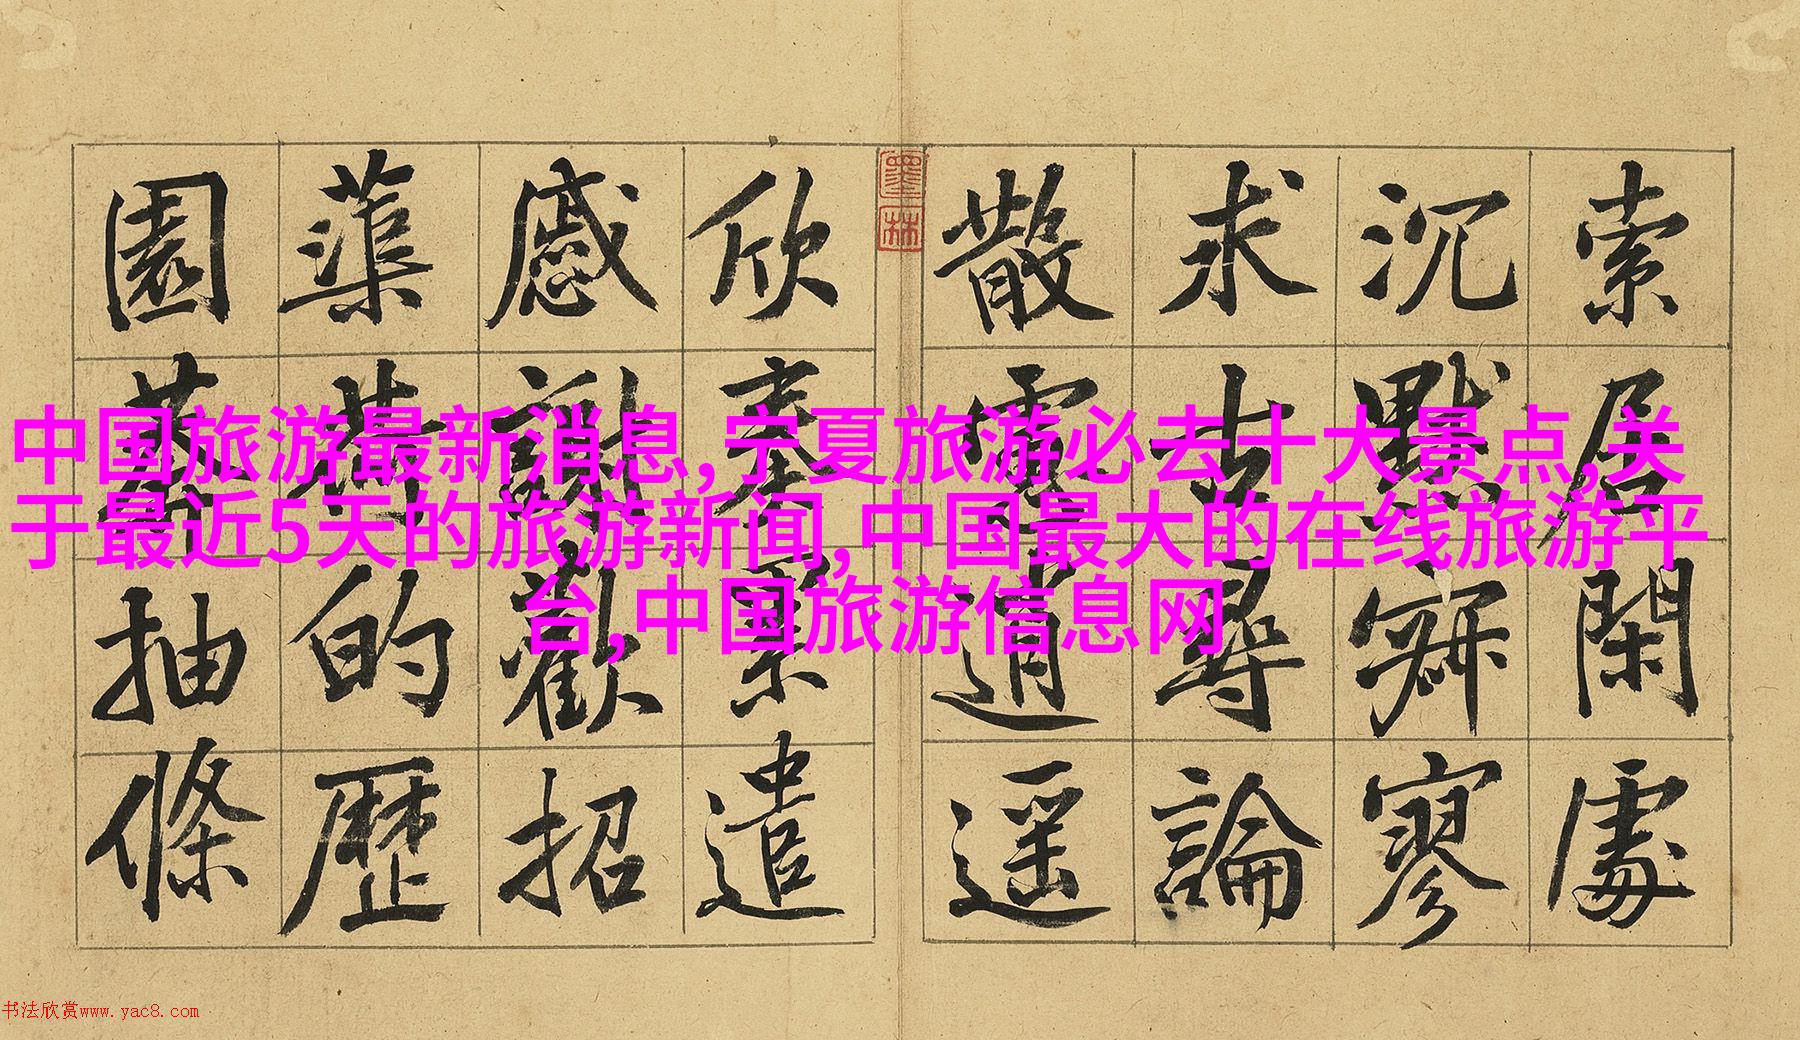 索居閑處
沉默寂寥
求古尋論
散慮逍遥
欣奏累遣
慼謝歡招
蕖荷的歷
園莽抽條
墨林
中国旅游最新消息,宁夏旅游必去十大景点,关
于最近5天的旅游新闻,中国最大的在线旅游平
台,中国旅游信息网
书法欣赏www.yac8.com